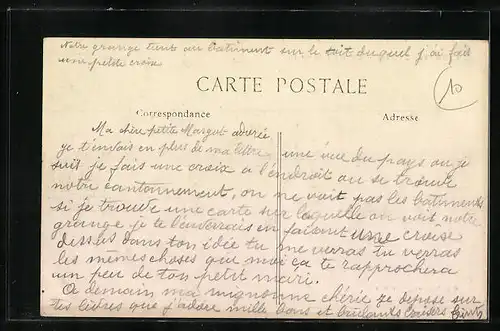 Notre grange tient au batiment sur le toit duquel j'ai fait
une petite croix
CARTE POSTALE
10
Correspondance
Adresse
Ma chère petite Margot adorée
je t'envois en plus de ma lettre
une vue du pays ou je
suit je fais une croix a l'endroit ou se trouve
notre cantonnement, on ne voit pas les batiments
si je trouve une carte sur laquelle on voit notre
grange je te l'enverrais en faisant une croise
dessus dans ton idée tu me verras tu verras
les memes choses que moi ça te rapprochera
un peu de ton petit mari.
A demain ma mignonne chérie je depose sur
tes lèvres que j'adore mille bons et brulants baisers